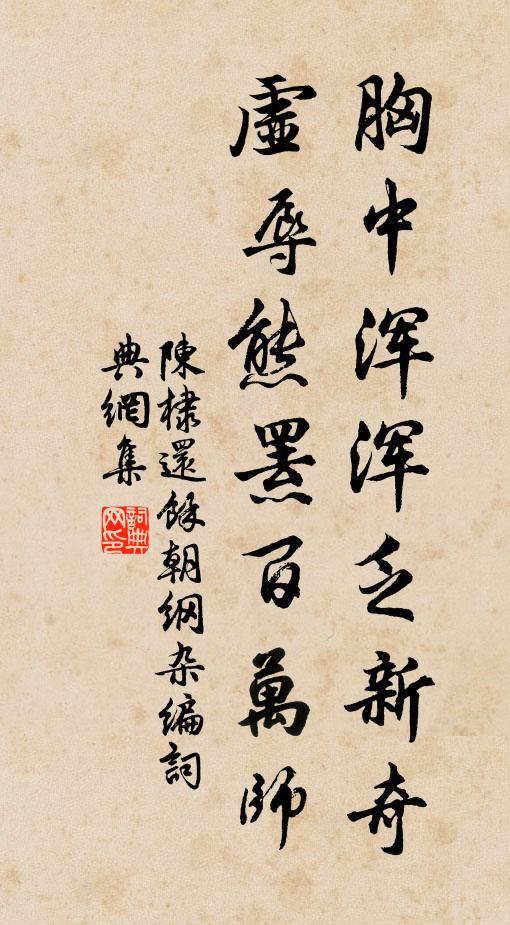 胸中浑浑乏新奇
虚辱熊罴百萬师
陳棣還餘朝纲杂编詞
典網集
詞典网印